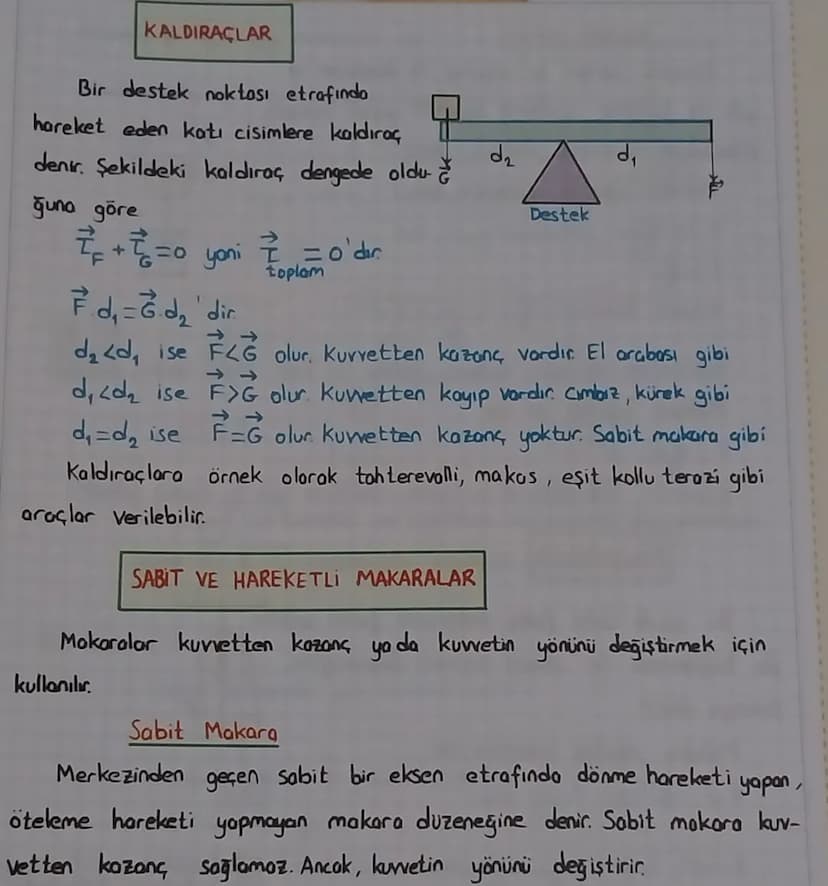 KALDIRAÇLAR
Bir destek noktası etrafında
hareket eden katı cisimlere kaldıraç
denir. Şekildeki kaldıraç dengede oldu-
ğuna göre
G
d₂
d₁
F
Destek
τ_F + τ_G = 0 yani τ_toplam = 0'dır.
F.d₁ = G.d₂'dir.
d₂<d₁ ise F<G olur. Kuvvetten kazanç vardır. El arabası gibi
d₁<d₂ ise F>G olur. Kuvvetten kayıp vardır. Cımbız, kürek gibi
d₁=d₂ ise F=G olur. Kuvvetten kazanç yoktur. Sabit makara gibi
Kaldıraçlara örnek olarak tahterevalli, makas, eşit kollu terazi gibi
araçlar verilebilir.
SABİT VE HAREKETLİ MAKARALAR
Makaralar kuvvetten kazanç ya da kuvvetin yönünü değiştirmek için
kullanılır.
Sabit Makara
Merkezinden geçen sabit bir eksen etrafında dönme hareketi yapan,
öteleme hareketi yapmayan makara düzeneğine denir. Sabit makara kuv-
vetten kazanç sağlamaz. Ancak, kuvvetin yönünü değiştirir.